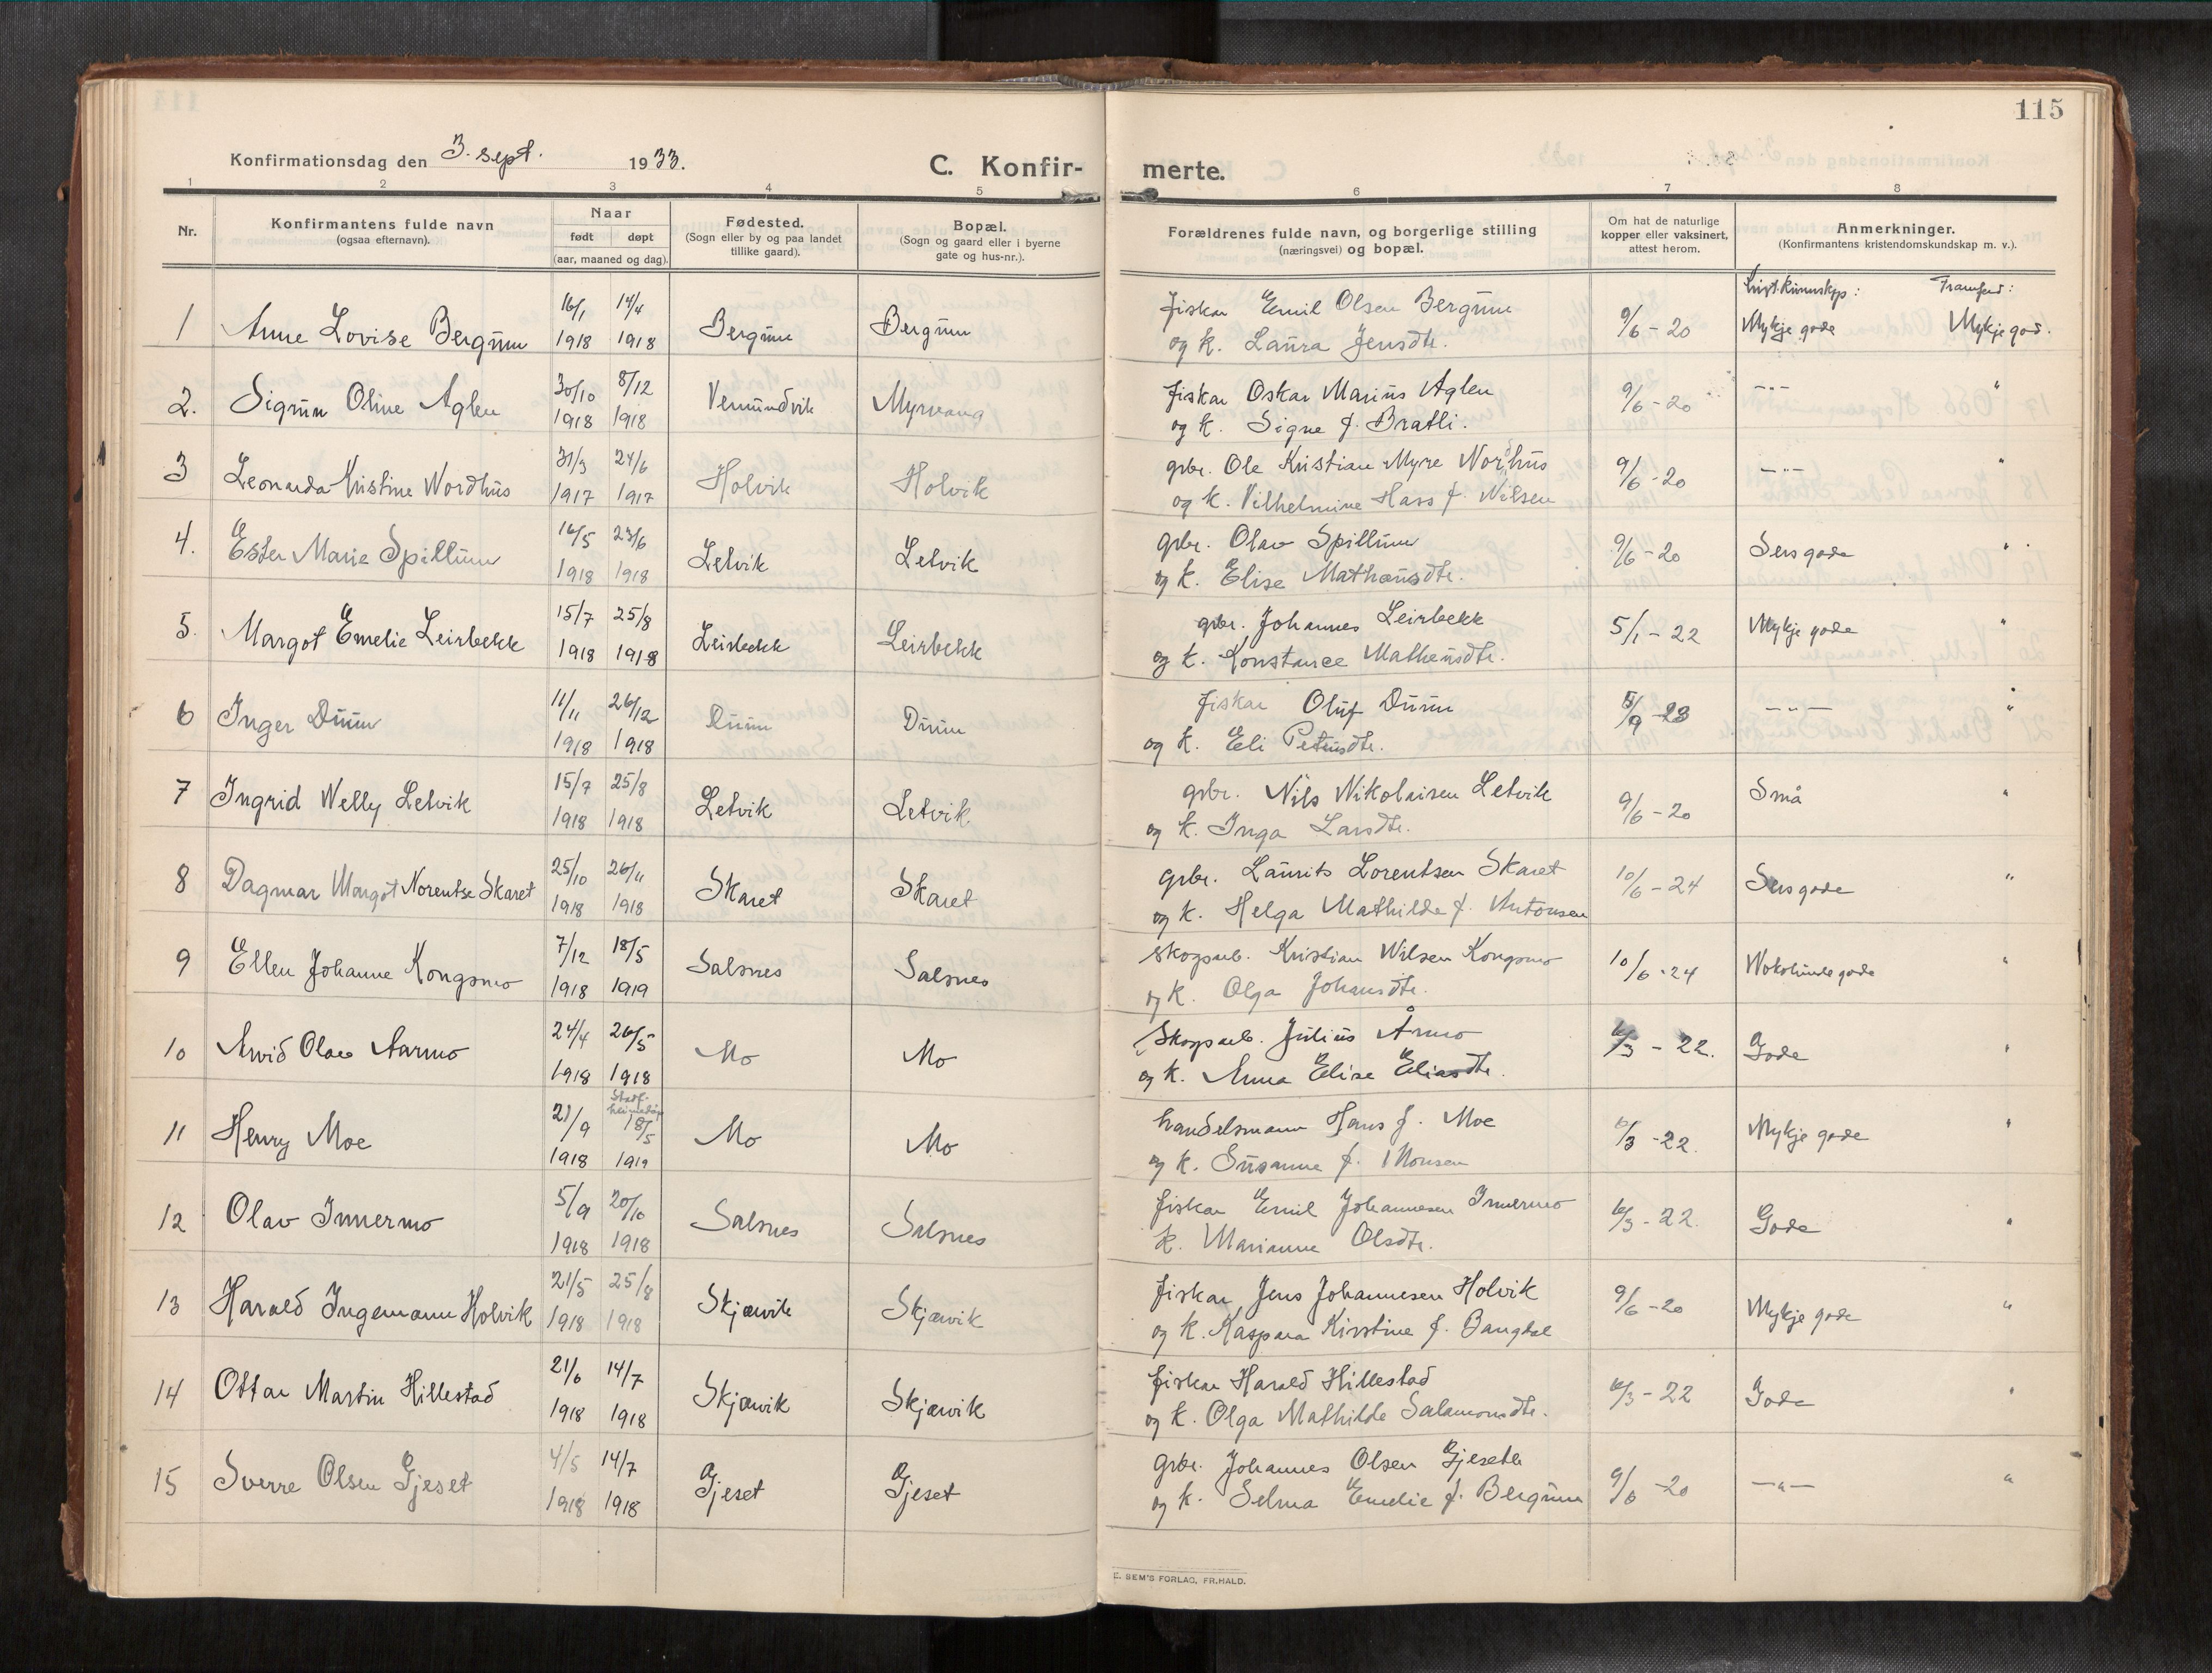 115
Konfirmationsdag den 3. sept. 1933.
C. Konfir-
merte.
1 2 3 4 5 6 7 8
Nr.
Konfirmantens fulde navn
(ogsaa efternavn).
Naar
født døpt
(aar, maaned og dag).
Fødested.
(Sogn eller by og paa landet
tillike gaard).
Bopæl.
(Sogn og gaard eller i byerne
gate og hus-nr.).
Forældrenes fulde navn, og borgerlige stilling
(næringsvei) og bopæl.
Om hat de naturlige
kopper eller vaksinert,
attest herom.
Anmerkninger.
(Konfirmantens kristendomskundskap m. v.).
Framferd:
1 Anne Lovise Bergünn 16/1 1918 14/4 1918 Bergünn Bergünn
fiskar Emil Olsen Bergünn
og k. Laura Jensdtr.
9/6 - 20 Mykje gode Mykje god.
2. Sigrun Oline Aglen 30/10 1918 8/12 1918 Vemundvik Myrvang
fiskar Oskar Marius Aglen
og k. Signe f. Bratli.
9/6 - 20 —"— "
3 Leonarda Kristine Nordhus 31/3 1917 24/6 1917 Holvik Holvik
grbr. Ole Kristian Myre Nordhus
og k. Vilhelmine Hass f. Nilsen
9/6 - 20 —"— "
4. Ester Marie Spillum 16/5 1918 23/6 1918 Letvik Letvik
grbr. Olav Spillum
og k. Elise Mathæusdtr.
9/6 - 20 Sers gode "
5. Margot Emelie Leirbekk 15/7 1918 25/8 1918 Leirbekk Leirbekk
grbr. Johannes Leirbekk
og k. Konstance Matheusdtr.
5/1 - 22 Mykje gode "
6 Inger Duun 11/11 1918 26/12 1918 Duun Duun
fiskar Oluf Duun
og k. Eli Petrusdtr.
5/9 - 23 —"— "
7 Ingrid Nelly Letvik 15/7 1918 25/8 1918 Letvik Letvik
grbr. Nils Nikolaisen Letvik
og k. Inga Larsdtr.
9/6 - 20 Små "
8 Dagmar Margot Norentse Skaret 25/10 1918 26/11 1918 Skaret Skaret
grbr. Laurits Lorentsen Skaret
og k. Helga Mathilde f. Antonsen
10/6 - 24 Sers gode "
9 Ellen Johanne Kongsmo 7/12 1918 18/5 1919 Salsnes Salsnes
skogsarb. Kristian Nilsen Kongsmo
og k. Olga Johansdtr.
10/6 - 24 Nokolunde gode "
10 Arvid Olav Aarmo 24/4 1918 26/5 1918 Mo Mo
Skogsarb. Julius Årmo
og k. Anna Elise Eliasdtr.
6/3 - 22. Gode "
11 Henry Moe 21/9 1918 Stadf. heimedåp 18/5 1919 Mo Mo
handelsmann Hans J. Moe
og k. Susanne f. Monsen
6/3 - 22. Mykje gode "
12 Olav Innermo 5/9 1918 20/10 1918 Salsnes Salsnes
fiskar Emil Johannesen Innermo
k. Marianne Olsdtr.
6/3 - 22. Gode "
13 Harald Ingemann Holvik 21/5 1918 25/8 1918 Skjærvik Skjærvik
fiskar Jens Johannesen Holvik
og k. Kaspara Kirstine f. Bangdal
9/6 - 20 Mykje gode "
14 Ottar Martin Hillestad 21/6 1918 14/7 1918 Skjærvik Skjærvik
fiskar Harald Hillestad
og k. Olga Mathilde Salamonsdtr.
6/3 - 22 Gode "
15 Sverre Olsen Gjeset 4/5 1918 14/7 1918 Gjeset Gjeset
grbr. Johannes Olsen Gjeseth
og k. Selma Emelie f. Bergünn
9/6 - 20 —"— "
E. SEM'S FORLAG, FR.HALD.